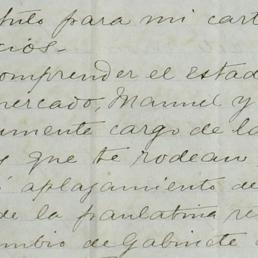 tulo para mi cart
cios.-
comprender el estad
mercado, Manuel y
umente cargo de la
y que te rodean
aplazamiento de
de la paulatina re
mbio de Gabinete